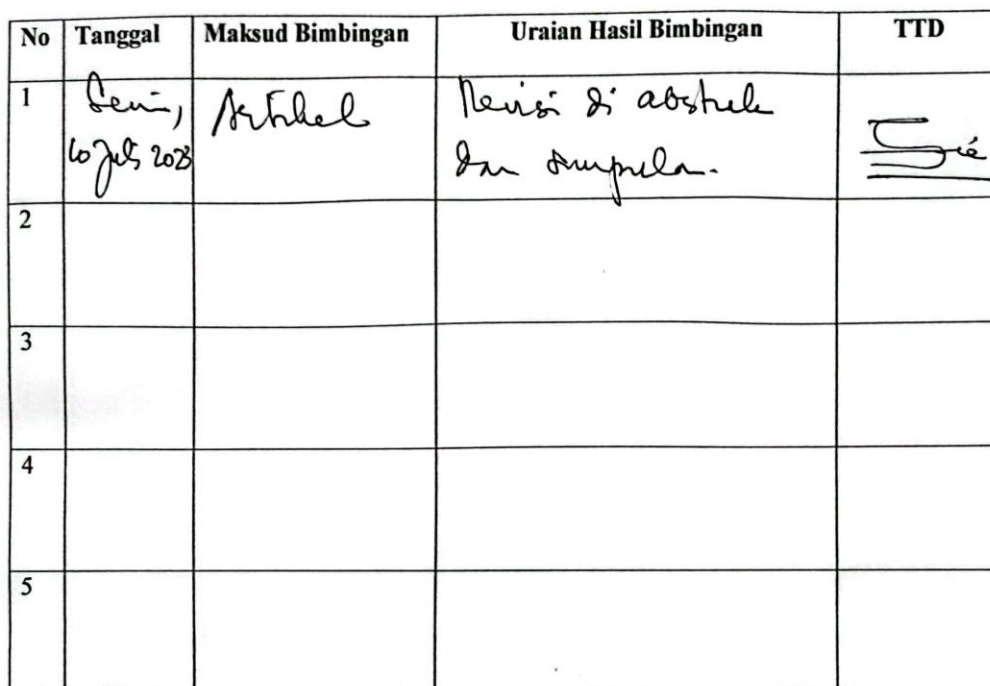 No Tanggal Maksud Bimbingan Uraian Hasil Bimbingan TTD
1 Senin, Artikel Revisi di abstrak
10 Juli 2023 dan simpulan.
2
3
4
5